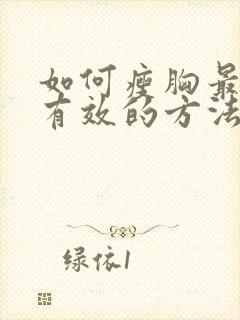 如何瘦胸最
有效的方法
绿依1